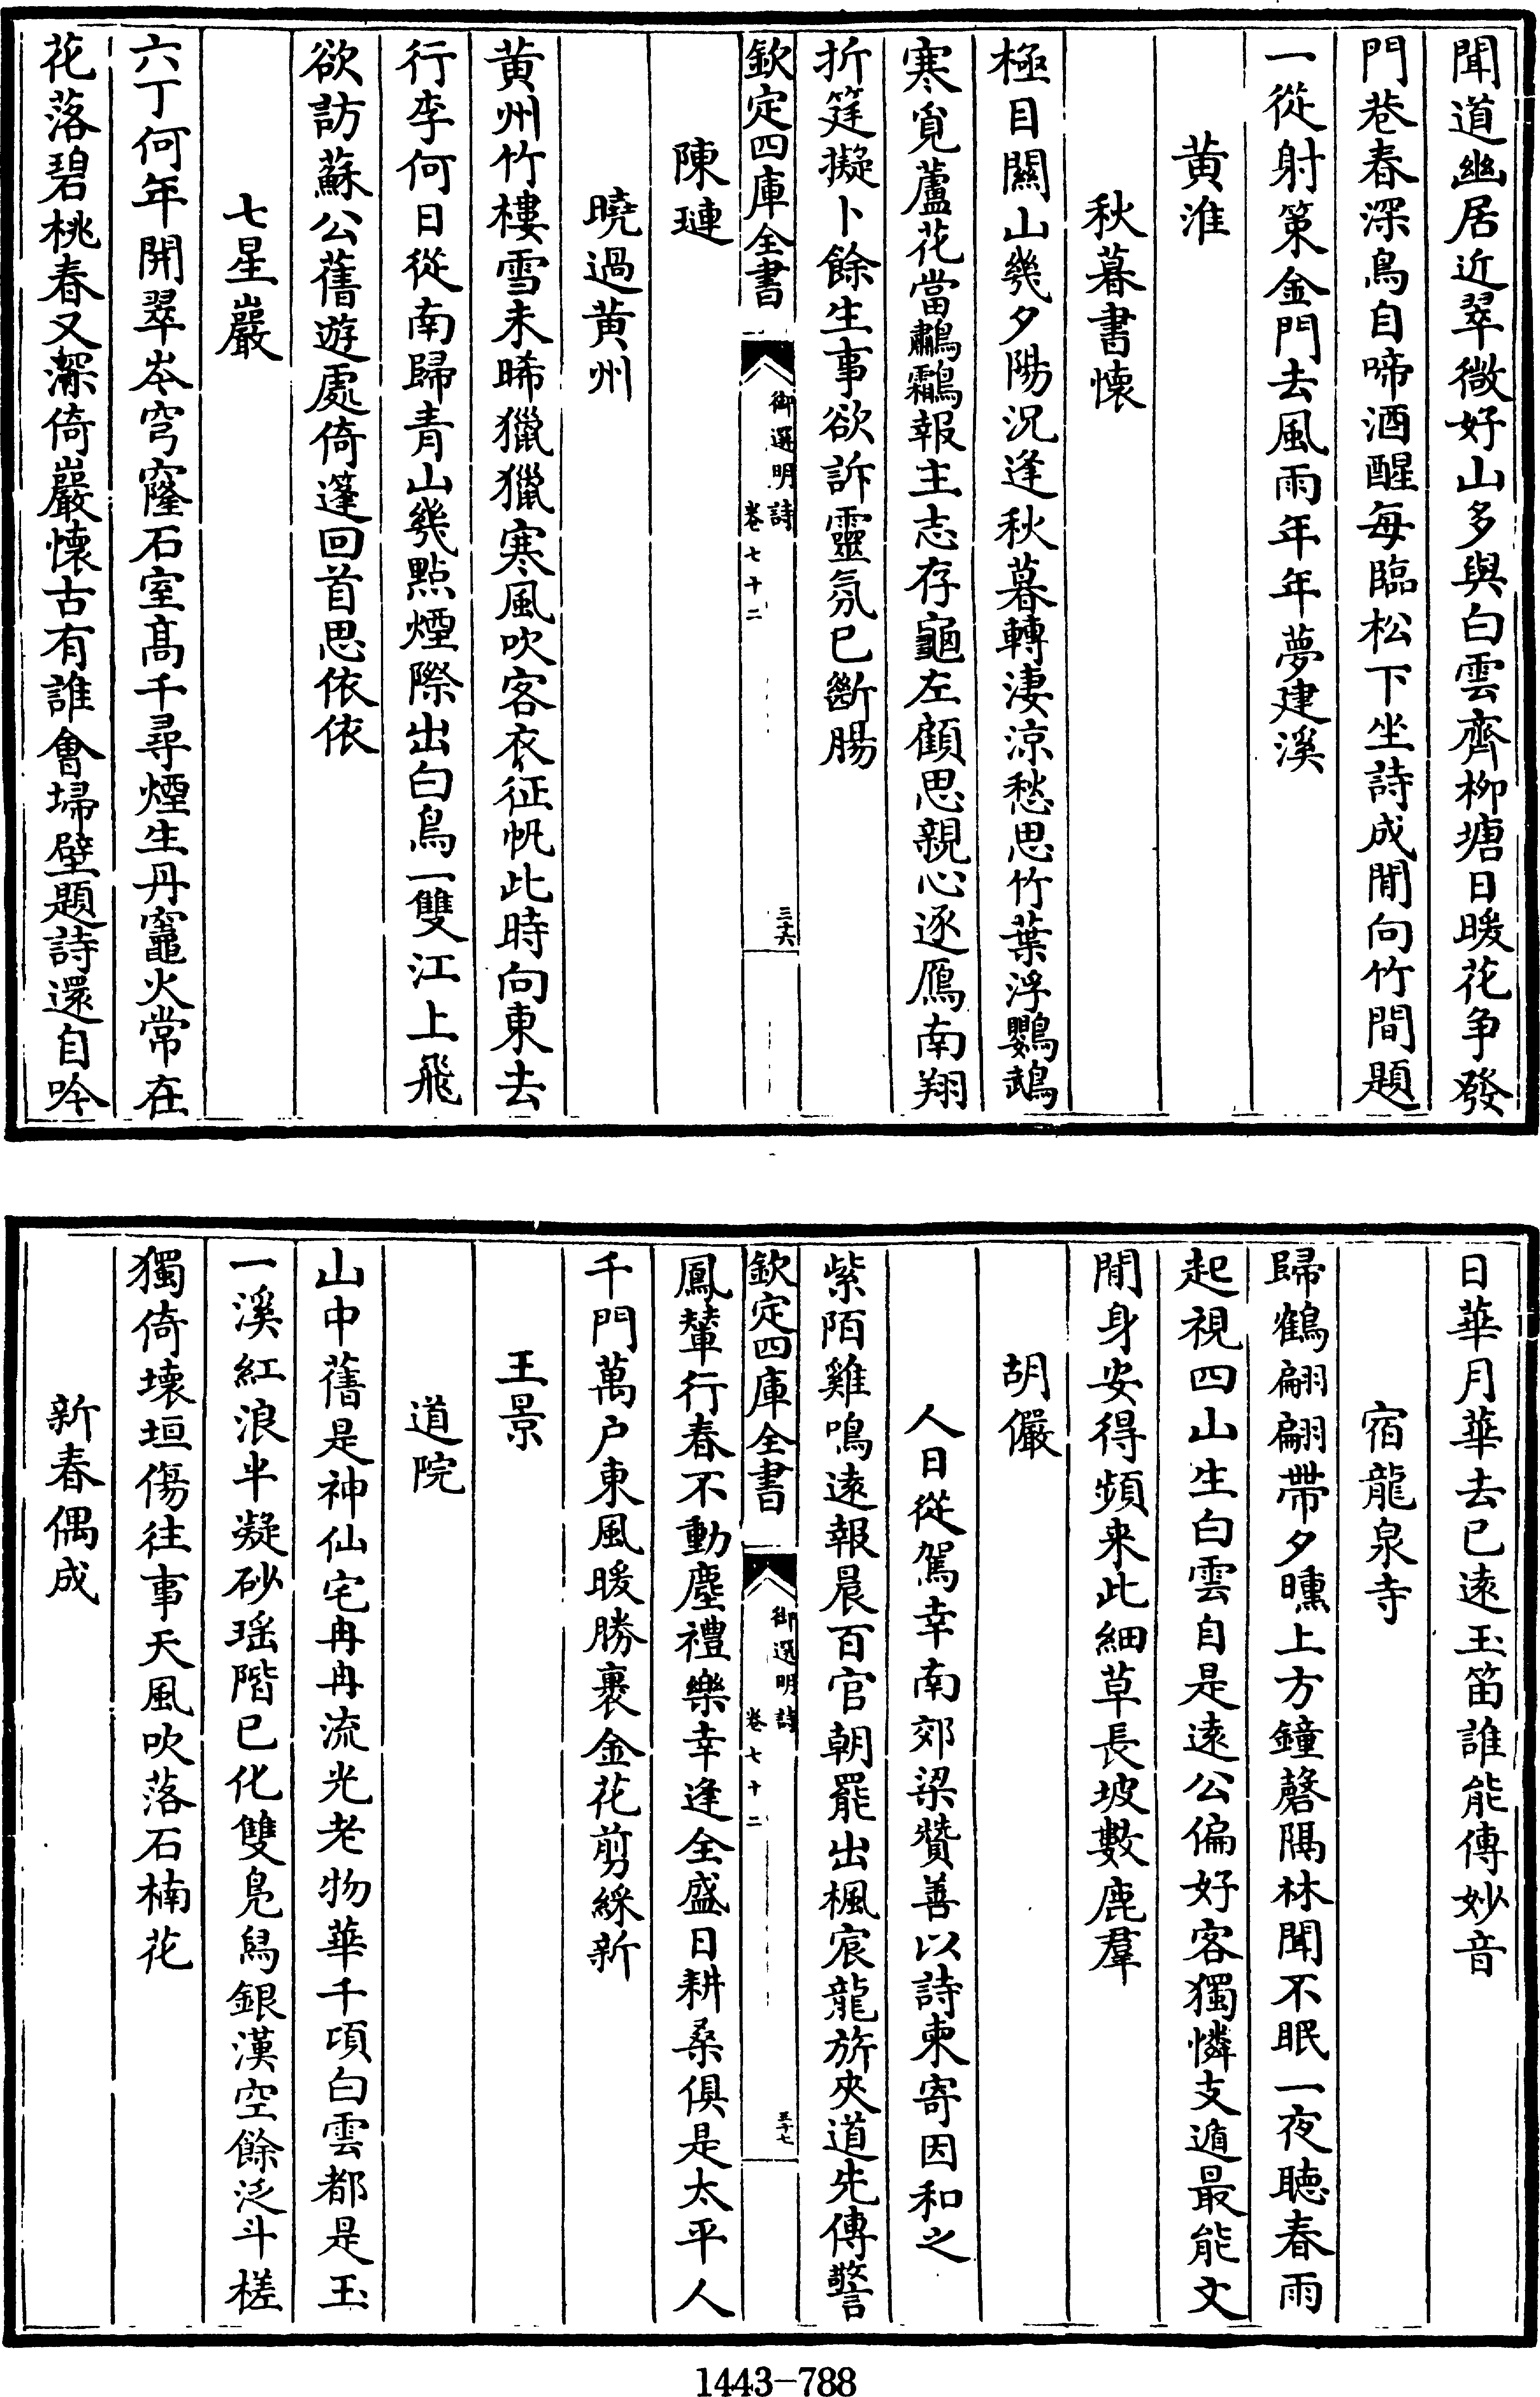 聞道幽居近翠微好山多與白雲齊栁塘日暖花争發
門巷春深鳥自啼酒醒每臨松下坐詩成閒向竹間題
一從射策金門去風雨年年夢建溪
黄淮
秋暮書懷
極目關山幾夕陽況逢秋暮轉淒涼愁思竹葉浮鸚鵡
寒覓蘆花當鷫鸘報主志存龜左顧思親心逐鴈南翔
折筳擬卜餘生事欲訴靈氛已斷腸
欽定四庫全書
御選明詩
卷七十二
三十六
陳璉
曉過黄州
黄州竹樓雪未晞獵獵寒風吹客衣征帆此時向東去
行李何日從南歸青山幾點煙際出白鳥一雙江上飛
欲訪蘇公舊遊處倚篷回首思依依
七星巖
六丁何年開翠岑穹窿石室髙千尋煙生丹竈火常在
花落碧桃春又深倚巖懷古有誰會埽壁題詩還自吟
日華月華去已遠玉笛誰能傳妙音
宿龍泉寺
歸鶴翩翩帶夕曛上方鐘磬隔林聞不眠一夜聴春雨
起視四山生白雲自是遠公偏好客獨憐支遁最能文
閒身安得頻来此細草長坡數鹿羣
胡儼
人日從駕幸南郊梁贊善以詩柬寄因和之
紫陌雞鳴遠報晨百官朝罷出楓宸龍旂夾道先傳警
欽定四庫全書
御選明詩
卷七十二
三十七
鳳輦行春不動塵禮樂幸逢全盛日耕桑俱是太平人
千門萬户東風暖勝裹金花剪綵新
王景
道院
山中舊是神仙宅冉冉流光老物華千項白雲都是玉
一溪紅浪半凝砂瑶階已化雙鳬舄銀漢空餘泛斗槎
獨倚壊垣傷往事天風吹落石楠花
新春偶成
1443-788